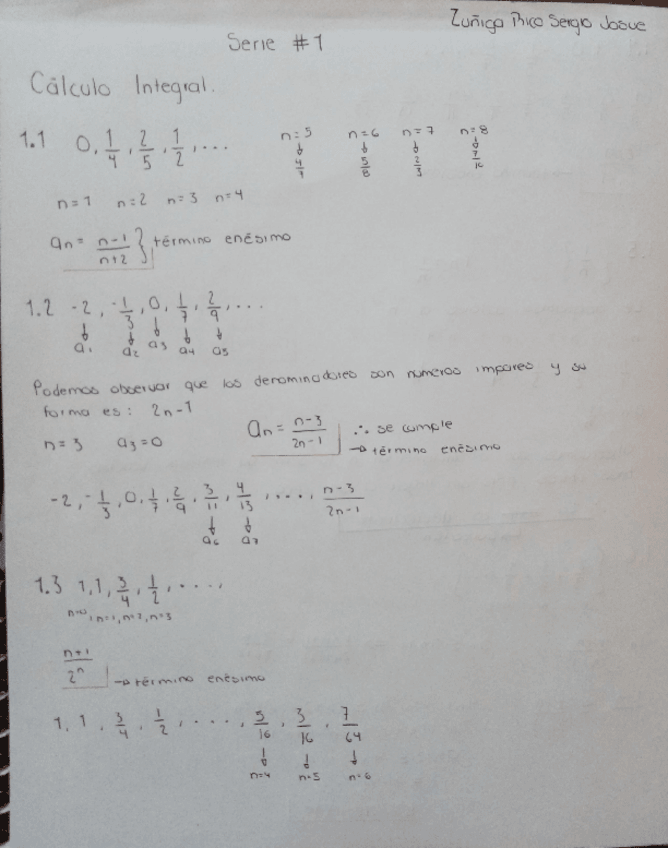 Zuñiga Rico Sergio Josue
Serie #1
Cálculo Integral.
1.1 0, 1/4, 2/5, 1/2, ...
n=5 n=6 n=7 n=8
↓ ↓ ↓ ↓
4/7 5/8 2/3 7/10
n=1 n=2 n=3 n=4
an = n-1/n+2 } término enésimo
1.2 -2, -1/3, 0, 1/7, 2/9, ...
↓ ↓ ↓ ↓ ↓
a1 a2 a3 a4 a5
Podemos observar que los denominadores son numeros impares y su
forma es: 2n-1
n=3 a3=0
an = n-3/2n-1 ∴ se cumple
→ término enésimo
-2, -1/3, 0, 1/7, 2/9, 3/11, 4/13, ...., n-3/2n-1
↓ ↓
a6 a7
1.3 1, 1, 3/4, 1/2, ....,
n=0, n=1, n=2, n=3
n+1/2^n → término enésimo
1, 1, 3/4, 1/2, ...., 5/16, 3/16, 7/64
↓ ↓ ↓
n=4 n=5 n=6